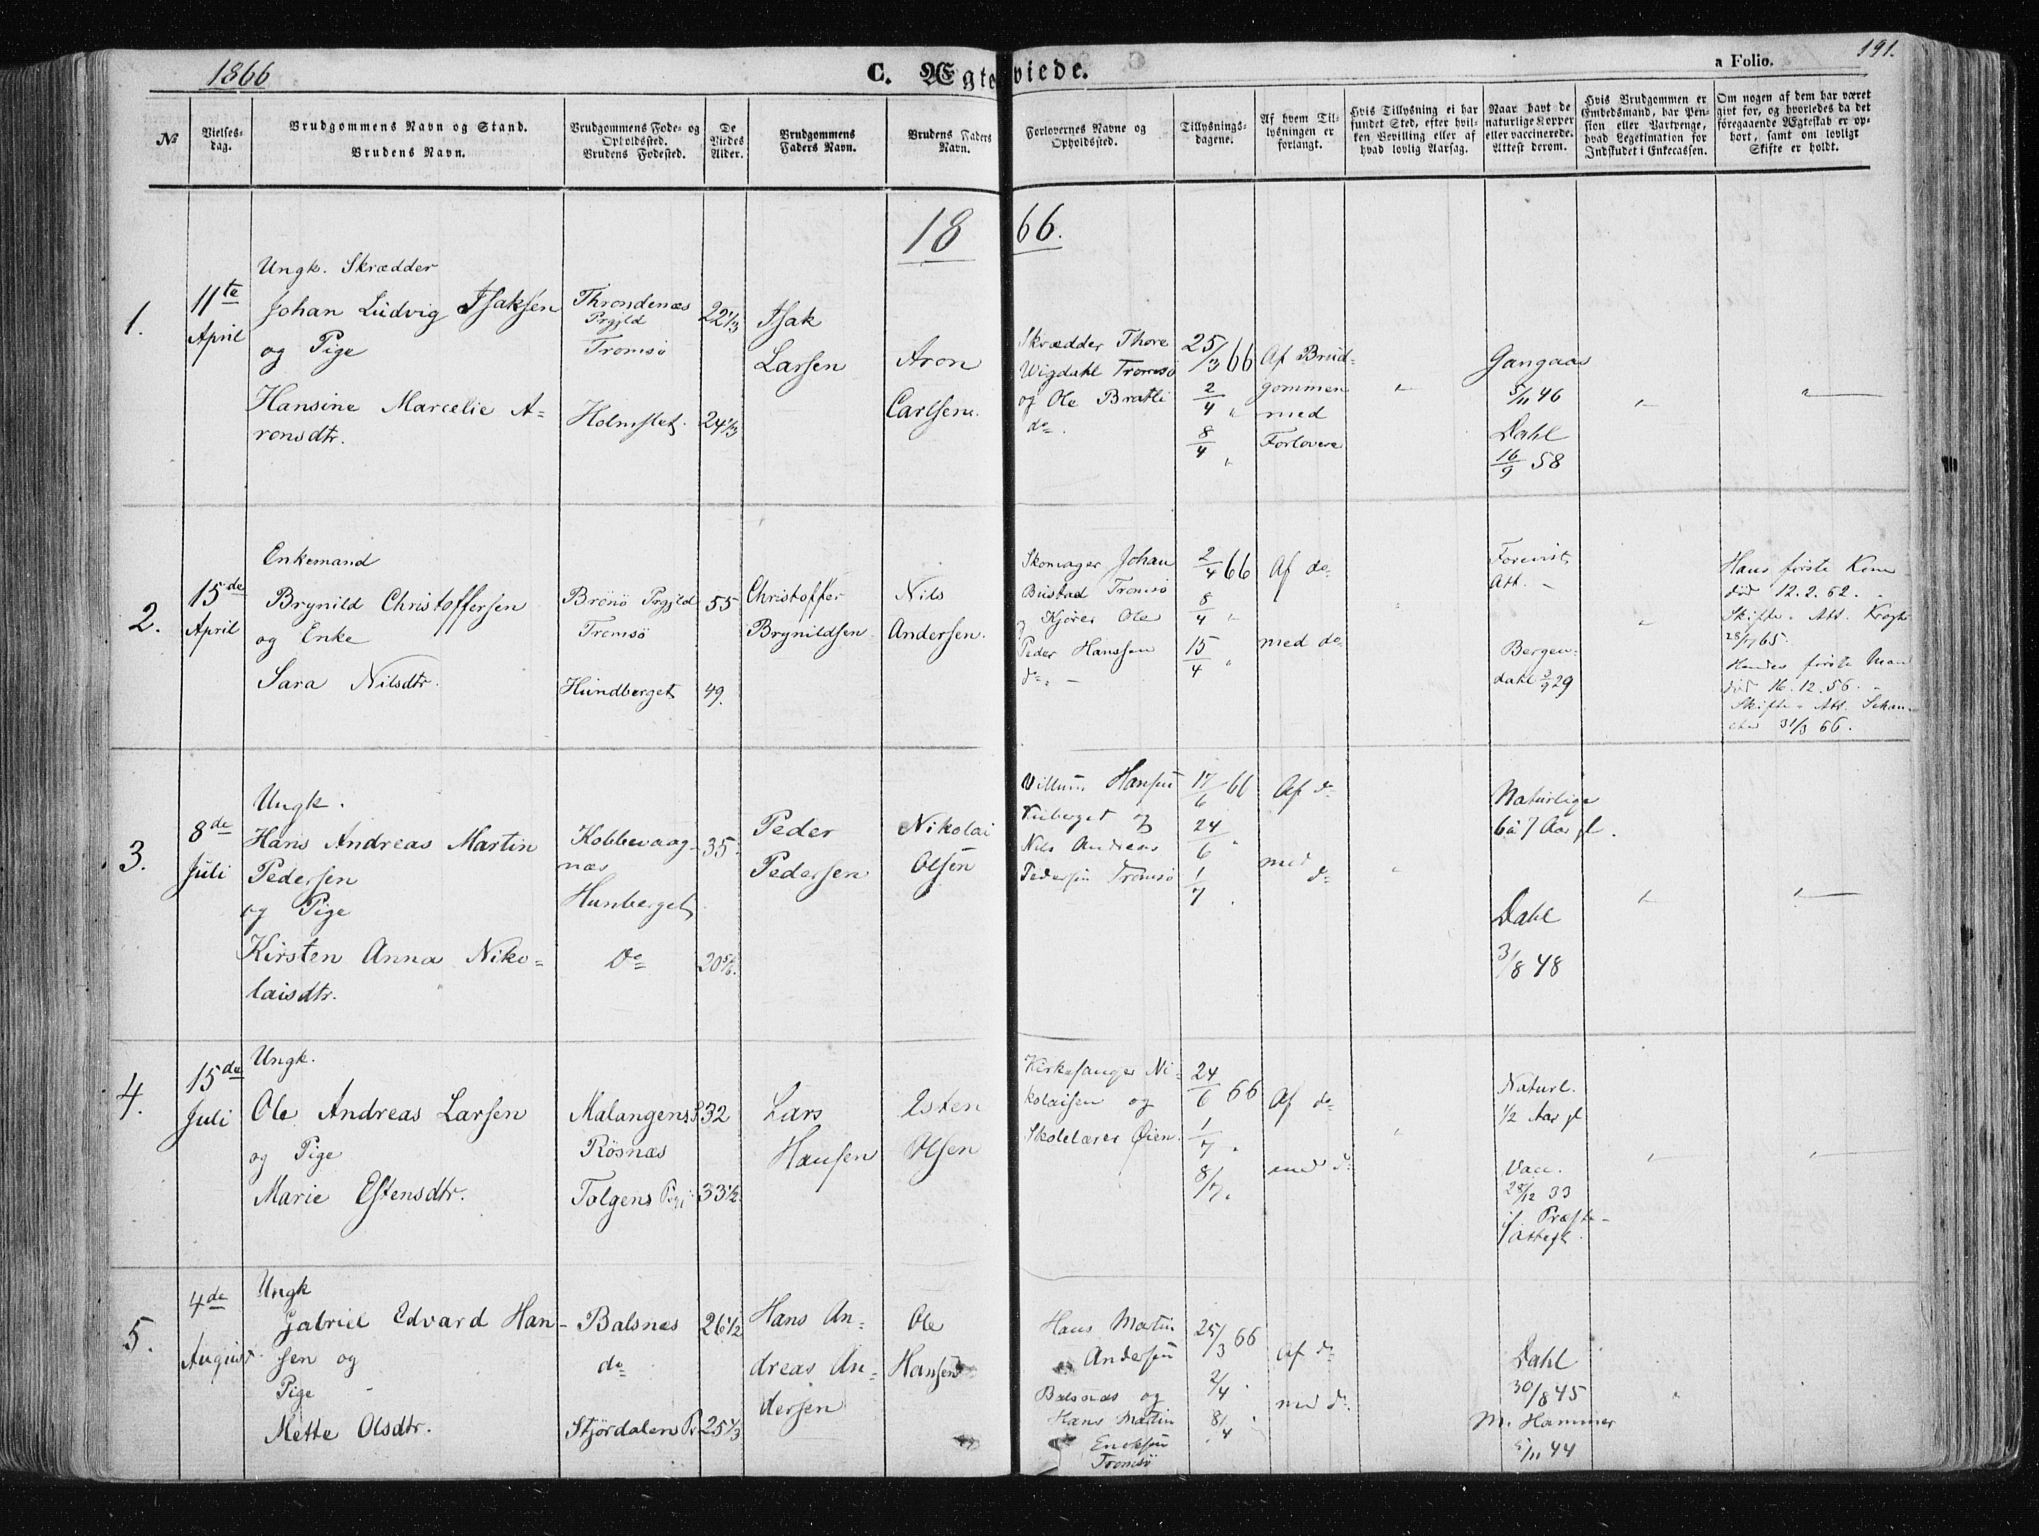 1866
C. Ægteviede.
a Folio.
191.
No
Vielses-
dag.
Brudgommens Navn og Stand.
Brudens Navn.
Brudgommens Føde- og
Opholdssted.
Brudens Fødested.
De
Viedes
Alder.
Brudgommens
Faders Navn.
Brudens Faders
Navn.
Forlovernes Navne og
Opholdssted.
Tillysnings-
dagene.
Af hvem Til-
lysningen er
forlangt.
Hvis Tillysning ei har
fundet Sted, efter hvil-
ken Bevilling eller af
hvad lovlig Aarsag.
Naar havt de
naturlige Kopper
eller vaccinerede.
Attest derom.
Hvis Brudgommen er
Embedsmand, har Pen-
sion eller Vartpenge,
hvad Legetimation for
Indskudet i Enkecassen.
Om nogen af dem har været
givt før, og hvorledes da det
foregaaende Ægteskab er op-
hørt, samt om lovligt
Skifte er holdt.
1866.
1.
11te
April
Ungk. Skrædder
Johan Ludvig Isaksen
og Pige
Hansine Marcelie A-
ronsdtr.
Throndenæs
Prgjld
Tromsø
Holmslet.
22 1/3
24 1/3
Isak
Larsen
Aron
Carlsen.
Skrædder Thore
Wigdahl Tromsø
og Ole Bratli
do.
25/3 66
2/4 "
8/4 "
Af Brud-
gommen
med
Forlovere
"
Gangaas
5/11 46
Dahl
16/9 58
"
"
2.
15de
April
Enkemand
Brynild Christoffersen
og Enke
Sara Nilsdtr.
Brønø Prgjld
Tromsø
Hundberget
55
49.
Christoffer
Brynildsen.
Nils
Andersen.
Skomager Johan
Bustad Tromsø
og Kjører Ole
Peder Hanssen
do. -
2/4 66
8/4 "
15/4 "
Af do
med do
"
Forevist
Att. -
Bergen-
dahl 3/9 29
"
Hans første Kone
død 12.2.62.
Skifte. Att. Krogh
28/7 65.
Hendes første Man
død 16.12.56.
Skifte. Att.
31/3 66.
3.
8de
Juli
Ungk.
Hans Andreas Martin
Pedersen
og Pige
Kirsten Anna Niko-
laisdtr.
Kobbevaag-
næs
Hunberget
Do
35.
20 5/6.
Peder
Pedersen
Nikolai
Olsen
Villum Hansen
og
Nils Andreas
Pedersen Tromsø
17/6 66
24/6 "
1/7 "
Af do
med
do
"
Naturlige
6 à 7 Aar gl.
Dahl
3/8 48
"
"
4.
15de
Juli
Ungk.
Ole Andreas Larsen
og Pige
Marie Estensdtr.
Malangens
Røsnæs
Tolgens Prgj
32
33 1/2.
Lars
Hansen
Esten
Olsen
Kirkesanger Ni-
kolaisen og
Skolelærer Øien.
24/6 66
1/7 "
8/7 "
Af do
med do
"
Naturl.
1/2 Aar gl
Vacc.
28/12 33
if. Præste-
attest.
"
"
5.
4de
August
Ungk
Gabriel Edvard Han-
sen og
Pige
Mette Olsdtr.
Balsnæs
do
Stjørdalen Pr
26 1/2
25 1/3
Hans An-
dreas An-
dersen
Ole
Hansen
Hans Martin
Andersen
Balsnæs og
Hans Martin
Ericksen
Tromsø
25/3 66
2/4 "
8/4 "
Af do
med do
Dahl
30/8 45
M. Hammer
5/11 44
"